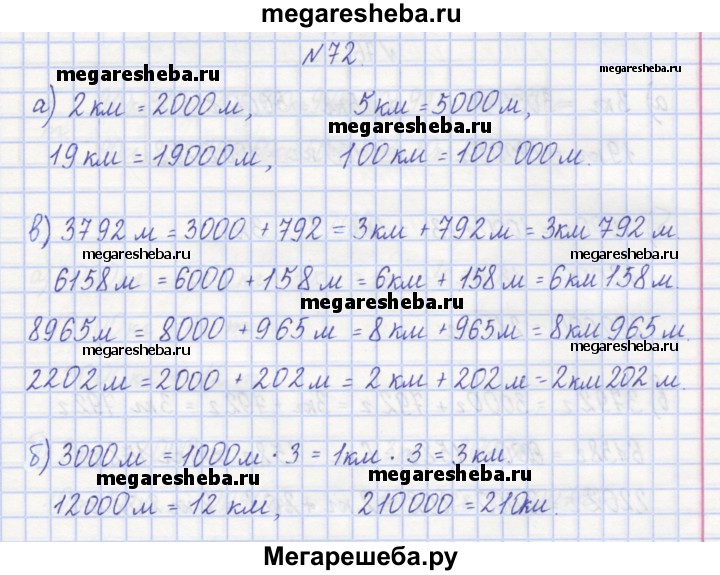 megaresheba.ru
№72
megaresheba.ru megaresheba.ru
а) 2 км = 2000 м, 5 км = 5000 м,
megaresheba.ru
19 км = 19000 м, 100 км = 100 000 м.
в) 3792 м = 3000 + 792 = 3 км + 792 м = 3 км 792 м.
megaresheba.ru megaresheba.ru
6158 м = 6000 + 158 м = 6 км + 158 м = 6 км 158 м.
megaresheba.ru
8965 м = 8000 + 965 м = 8 км + 965 м = 8 км 965 м.
megaresheba.ru megaresheba.ru
2202 м = 2000 + 202 м = 2 км + 202 м = 2 км 202 м.
б) 3000 м = 1000 м · 3 = 1 км · 3 = 3 км.
megaresheba.ru megaresheba.ru
12000 м = 12 км, 210000 = 210 км.
Мегарешеба.ру